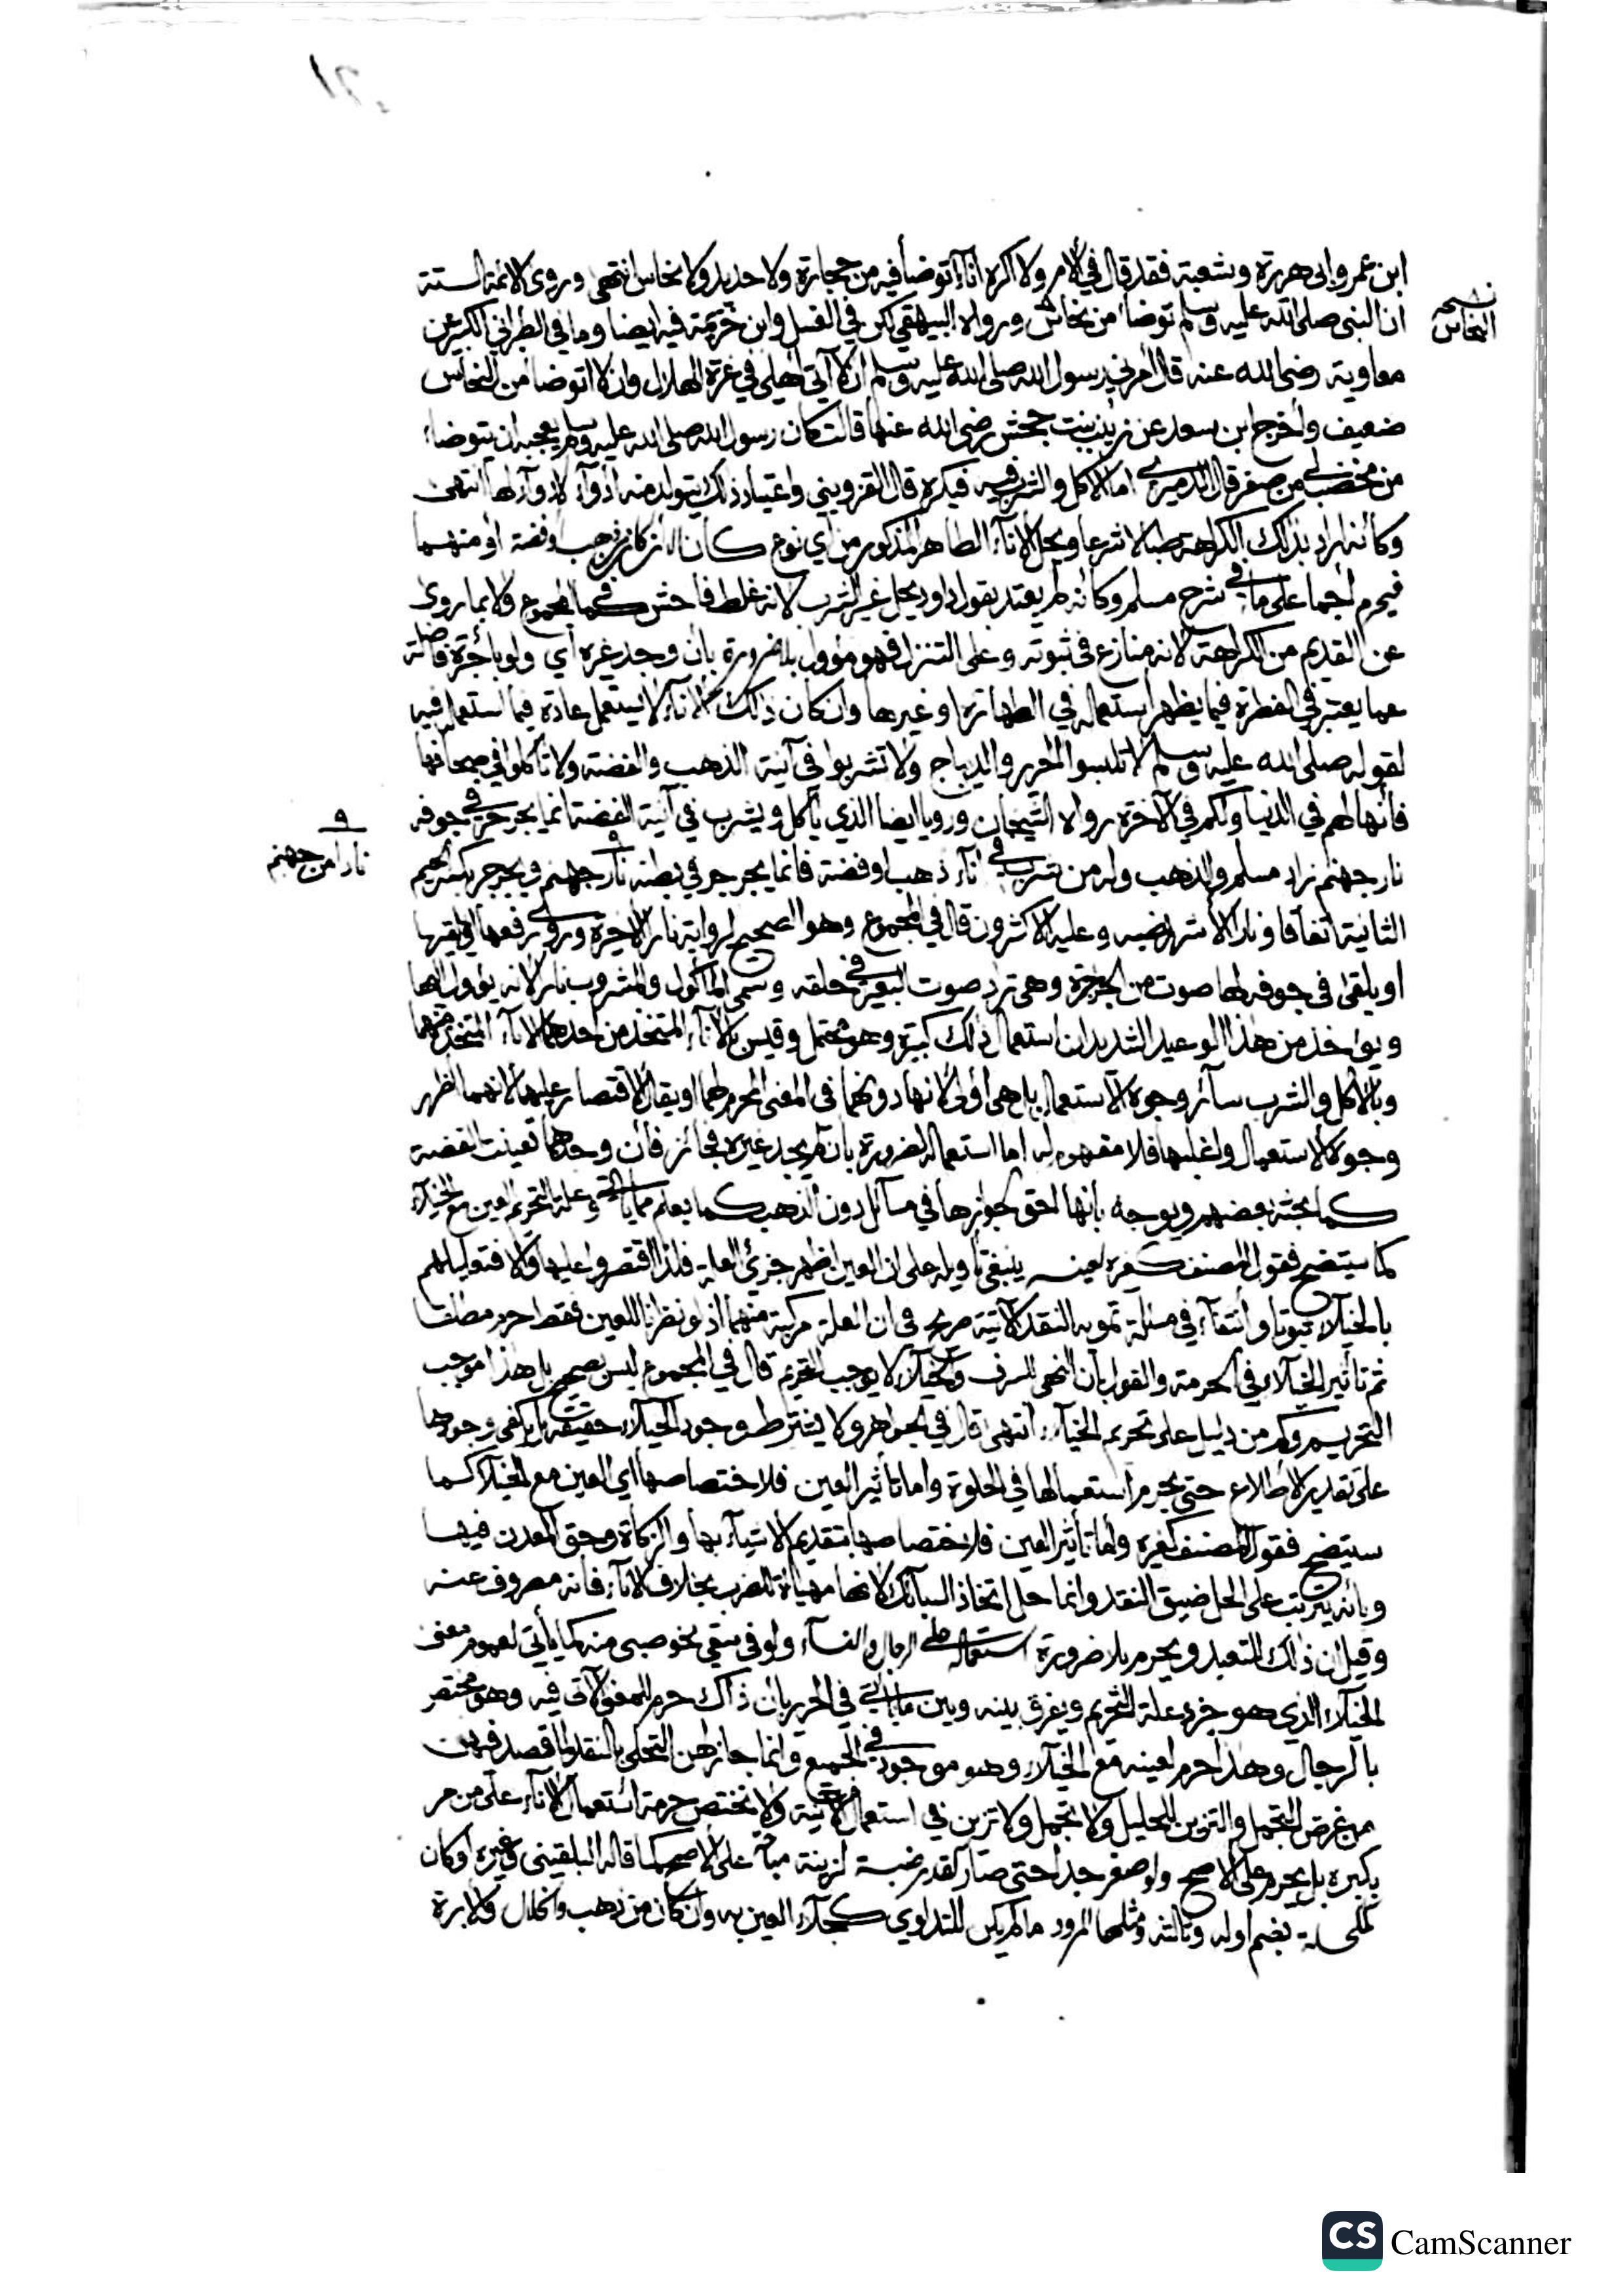 ٢١
ابن عمر وابي هريرة وشعبة فقد قال في الأمر ولا اكره اناءً توضأ فيه من حجارة ولا حديد ولا نحاس انتهى وروى الائمة الستة
ان النبي صلى الله عليه وسلم توضأ من نحاس ورواه البيهقي لكن في الغسل وابن خزيمة فيه ايضا وما في الطبراني الكبير عن
نسخة النحاس
معاوية رضي الله عنه قال امرني رسول الله صلى الله عليه وسلم ان لا آتي اهلي في غرة الهلال وان لا اتوضأ من النحاس
ضعيف واخرج ابن سعد عن زينب بنت جحش رضي الله عنها قالت كان رسول الله صلى الله عليه وسلم يعجبه ان يتوضاء
من مخضب من صفر قال الدميري اما الاكل والشرب فيه فيكره قال القزويني واعتياد ذلك يتولد منه ادوآء لا دوآء لها انتهى
وكأنه اراد بذلك الكراهة طبا لا شرعا ويحل الاناء الطاهر المذكور من اي نوع كان الا ان كان من ذهب او فضة او منهما
فيحرم اجماعا على ما في شرح مسلم وكأنه لم يعتد بقول داود يحل غير الشرب لانه غلط فاحش كما في المجموع ولا بما روى
عن القديم من الكراهة لانه منازع في ثبوته وعلى التنزل فهو مؤول بلا ضرورة بان وجد غيره اي ولو باجرة فاضلة
عما يعتبر في الفطرة فيما يظهر استعماله في الطهارة او غيرها وان كان ذلك الاناء لا يستعمل عادة فيما استعمل فيه
لقوله صلى الله عليه وسلم لا تلبسوا الحرير والديباج ولا تشربوا في آنية الذهب والفضة ولا تأكلوا في صحافها
فانها لهم في الدنيا ولكم في الآخرة رواه الشيخان ورويا ايضا الذي يأكل ويشرب في آنية الفضة انما يجرجر في جوفه
نار جهنم زاد مسلم والذهب وله من شرب في اناء ذهب او فضة فانما يجرجر في بطنه نارا من جهنم ويجرجر بكسر الجيم
٩ نارا من جهنم
الثانية اتفاقا ونار الاشهر نصبه وعليه الاكثرون قال في المجموع وهو الصحيح لرواية نارا الاخيرة وروي رفعها
او يلقى في جوفه لها صوت من الجرجرة وهي تردد صوت البعير في حلقه وسمى المأكول والمشروب نارا لانه يؤول لها
ويؤاخذ من هذا الوعيد الشديد ان استعمال ذلك كبيرة وهو محتمل وقيس بالاناء المتخذ من احدهما الاناء المتخذ منهما
وبالاكل والشرب سائر وجوه الاستعمال بل هي أولى لانها دونهما في المعنى المحرم لهما او يقال الاقتصار عليهما لانهما اظهر
وجوه الاستعمال واغلبها فلا مفهوم له اما استعماله لضرورة بان لم يجد غيره فجائز فان وجدهما تعينت الفضة
كما بحثه بعضهم ويوجه بانها احق لجوازها في مسائل دون الذهب كما يعلم مما يأتي وعلة التحريم العين مع الخيلاء
كما سيتضح فقول المصنف كغيره لعينه ينبغي تأويله على ان العين اظهر جزئي العلة فلذا اقتصروا عليها والا فتعليلهم
بالخيلاء ثبوتا وانتفاء في مسئلة تمويه النقد الآتية صريح في ان العلة مركبة منهما اذ لو نظرنا للعين فقط حرم مطلقا
ثم تأثير الخيلاء في الحرمة والقول بان النهي للسرف والخيلاء لا يوجب التحريم قال في المجموع ليس بصحيح بل هذا موجب
التحريم وكم من دليل على تحريم الخيلاء انتهى قال في الجواهر ولا يشترط وجود الخيلاء حقيقة بل يكفي وجودها
على تقدير الاطلاع حتى يحرم استعمالها في الخلوة واما تأثير العين فلاختصاصها اي العين مع الخيلاء كما
سيتضح فقول المصنف كغيره واما تأثير العين فلاختصاصها بتقديم الاشياء بها والزكاة وحق المعدن فيها
وبانه يترتب على الحل ضيق النقد وانما حل اتخاذ السبائك لانها مهيأة للضرب بخلاف الاناء فانه مصروف عنه
وقيل ان ذلك للتعبد ويحرم بلا ضرورة استعماله على الرجال والنساء ولو في سقي نحو صبي منه كما يأتي لعموم معنى
الخيلاء الذي هو جزء علة التحريم ويفرق بينه وبين ما يأتي في الحرير بان ذاك حرم للمعنى الآتي فيه وهو مختص
بالرجال وهذا حرم لعينه مع الخيلاء وهو موجود في الجميع وانما جاز لهن التحلي بالنقد لما قصد فيهن
من غرض التجمل والتزين للحليل ولا تجمل ولا تزين في استعمال الآنية ولا يختص حرمة استعمال الاناء على من مر
بكبيره بل يحرم على الاصح ولو صغر جدا حتى صار كقدر ضبة لزينة مباحة على الاصح كما قاله البلقيني وغيره او كان
كمكحلة بضم اوله وثالثه ومثلها المرود ما لم يكن للتداوي كجلاء العين به وان كان من ذهب وخلال ولابرة
CS CamScanner